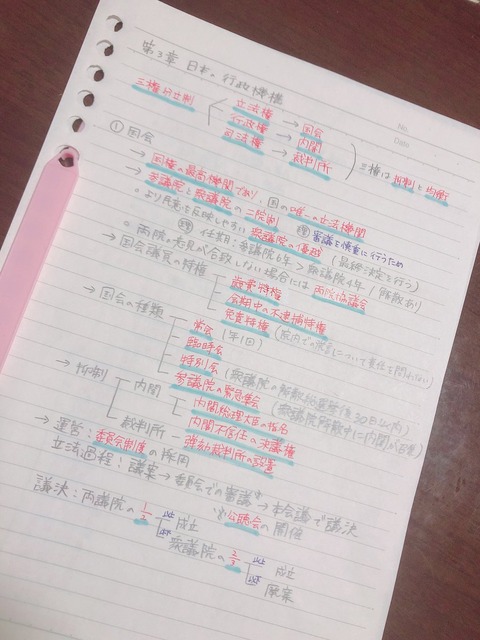 第3章 日本の行政機構
No.
Date
三権分立制
立法権 → 国会
行政権 → 内閣
司法権 → 裁判所
三権は抑制と均衡
① 国会
→ 国権の最高機関であり、国の唯一の立法機関
→ 参議院と衆議院の二院制 理 審議を慎重に行うため
○ より民意を反映しやすい衆議院の優越 (最終決定を行う)
理 任期:参議院6年 > 衆議院4年 / 解散あり
○ 両院の意見が合致しない場合には両院協議会
→ 国会議員の特権
歳費特権
会期中の不逮捕特権
免責特権 (院内での発言について責任を問われない)
→ 国会の種類
常会 (年1回)
臨時会
特別会 (衆議院の解散総選挙後30日以内)
参議院の緊急集会 (衆議院解散中に内閣が召集)
→ 抑制
内閣
内閣総理大臣の指名
内閣不信任の決議権
裁判所 - 弾劾裁判所の設置
→ 運営:委員会制度の採用
立法過程:議案 → 委員会での審議 → 本会議で議決
公聴会の開催
議決:両議院の1/2
成立
衆議院の2/3
成立
廃案